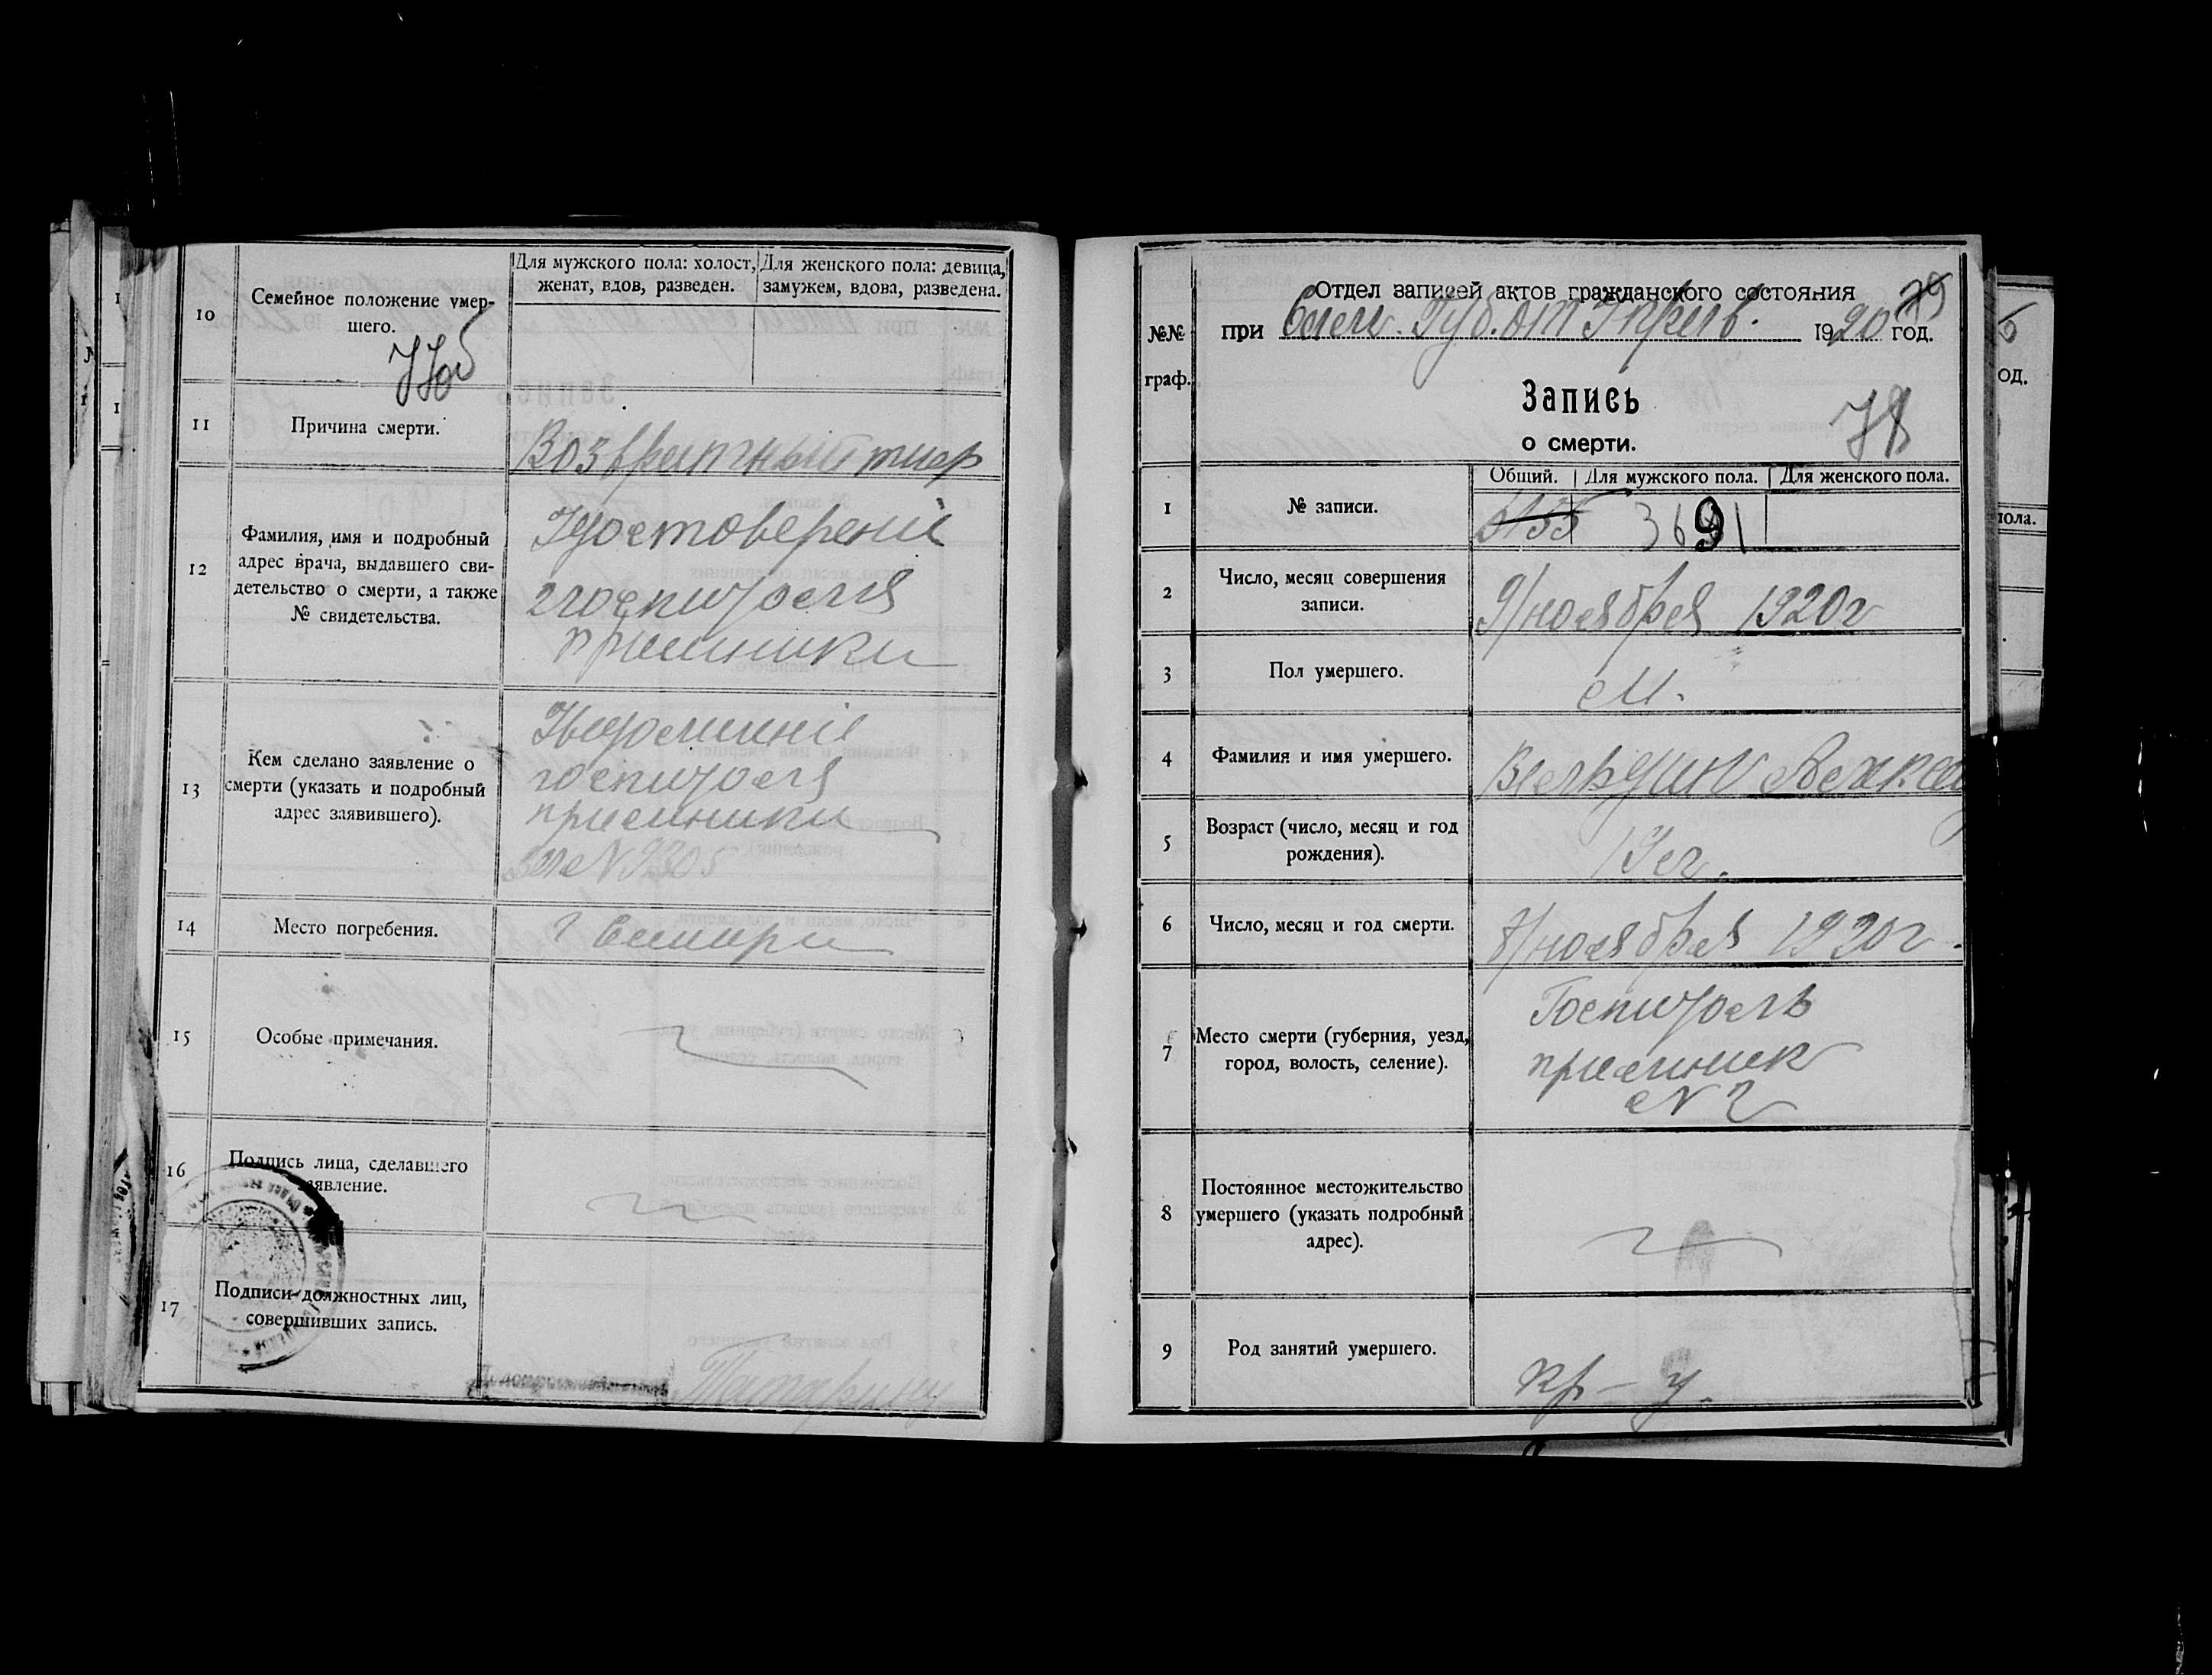 10
Семейное положение умер-
шего.
Для мужского пола: холост,
женат, вдов, разведен.
Для женского пола: девица,
замужем, вдова, разведена.
11
Причина смерти.
Возвратный тиф
12
Фамилия, имя и подробный
адрес врача, выдавшего сви-
детельство о смерти, а также
№ свидетельства.
Удостоверение
госпиталя
приемника
13
Кем сделано заявление о
смерти (указать и подробный
адрес заявившего).
госпиталя
приемника
№ 9305
14
Место погребения.
г Самара
15
Особые примечания.
16
Подпись лица, сделавшего
заявление.
17
Подписи должностных лиц,
совершивших запись.
№№
граф.
Отдел записей актов гражданского состояния
при Губ. от Управ. 1920 год.
79
Запись
о смерти.
78
Общий. Для мужского пола. Для женского пола.
1
№ записи.
3691
2
Число, месяц совершения
записи.
9/ноября 1920г
3
Пол умершего.
М.
4
Фамилия и имя умершего.
5
Возраст (число, месяц и год
рождения).
19 л.
6
Число, месяц и год смерти.
8/ноября 1920г.
7
Место смерти (губерния, уезд,
город, волость, селение).
Госпиталь
приемник
№ 2
8
Постоянное местожительство
умершего (указать подробный
адрес).
9
Род занятий умершего.
кр-ц.
од.
пола.